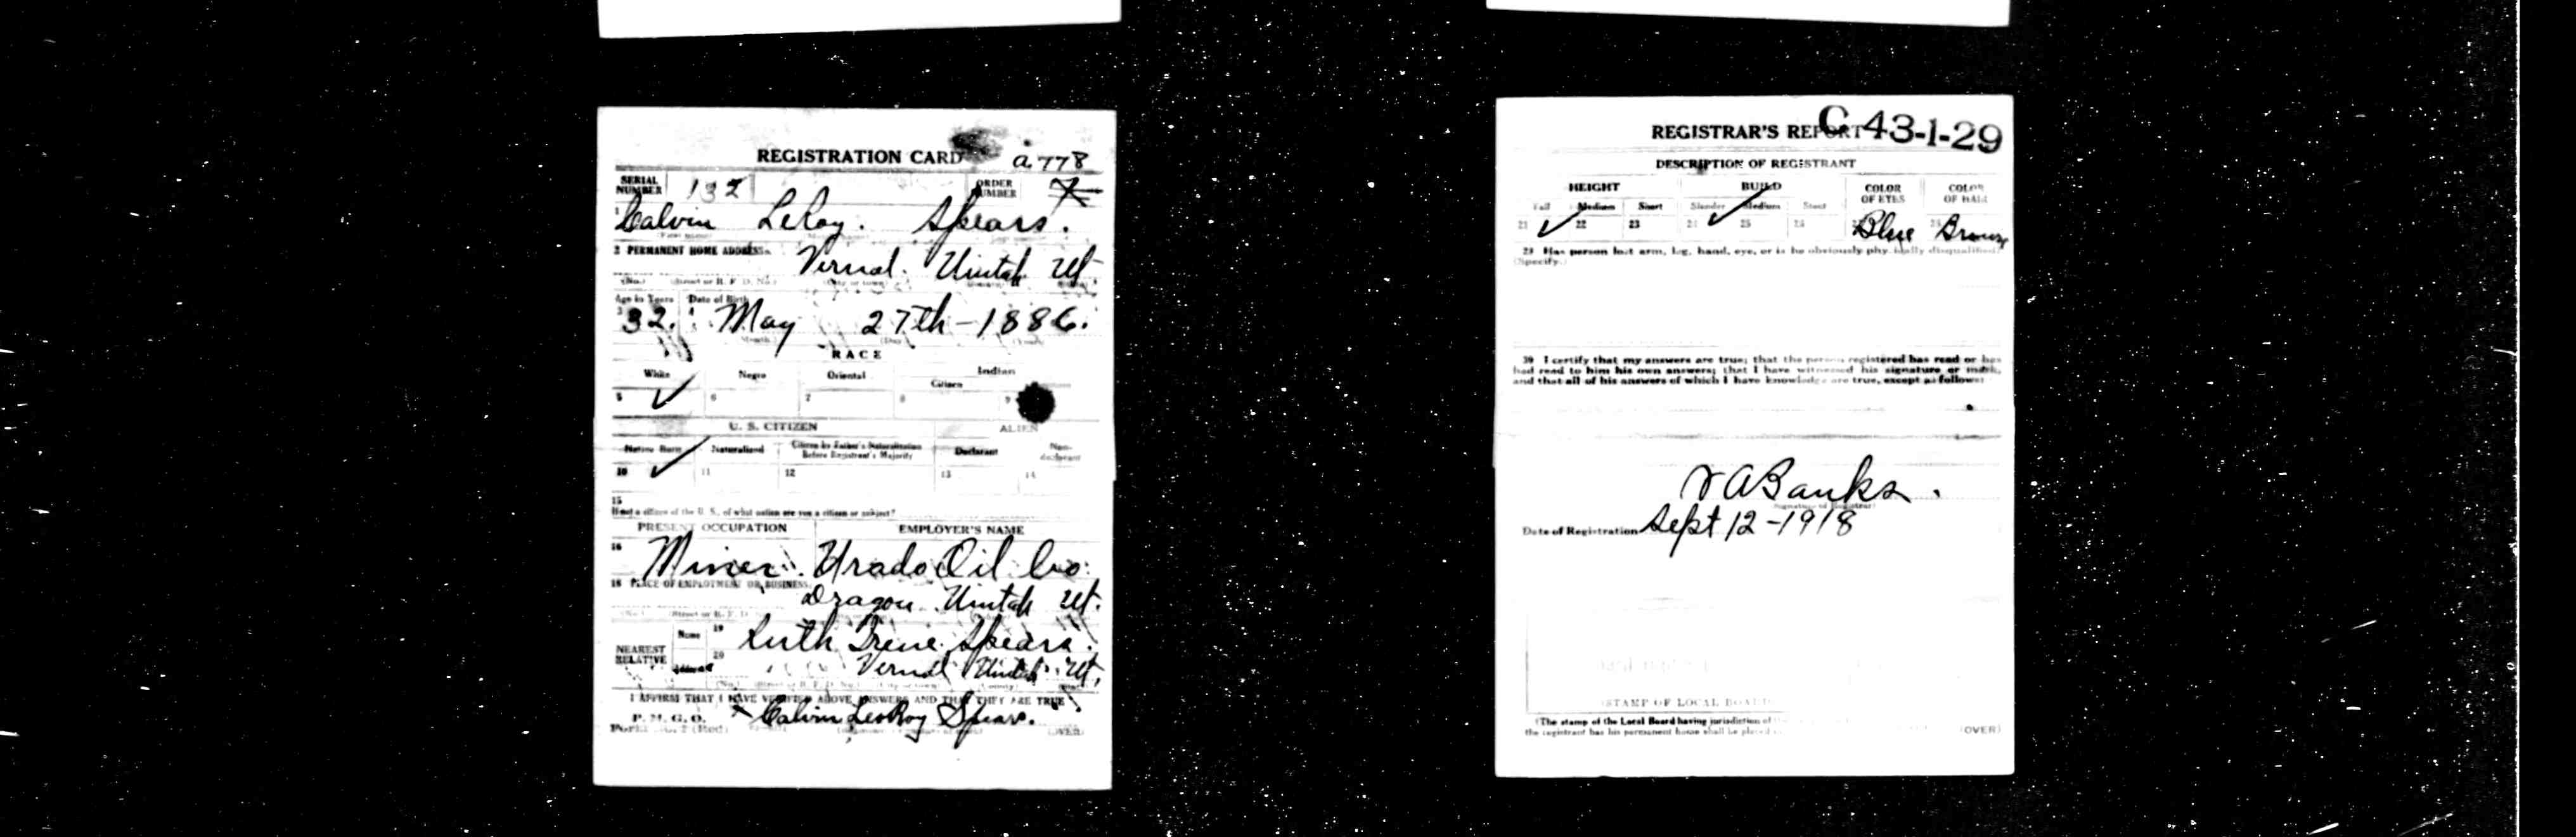 REGISTRATION CARD a.778
SERIAL NUMBER 132 ORDER NUMBER
1 Calvin LeRoy. Spears.
2 PERMANENT HOME ADDRESS Vernal. Uintah Ut.
(No.) (Street or R. F. D. No.) (City or town) (County) (State)
Age in Years Date of Birth
3 32. May 27th-1886.
(Month.) (Day.) (Year.)
RACE
White Negro Oriental Indian
Citizen
5 ✓ 6 7 8 9
U. S. CITIZEN ALIEN
Native Born Naturalized Citizen by Father's Naturalization Before Registrant's Majority Declarant Non-declarant
10 ✓ 11 12 13 14
15
If not a citizen of the U. S., of what nation are you a citizen or subject?
PRESENT OCCUPATION EMPLOYER'S NAME
16 Miner. Urado Oil Co.
18 PLACE OF EMPLOYMENT OR BUSINESS:
Dragon. Uintah Ut.
(No.) (Street or R. F. D. No.)
NEAREST RELATIVE Name 19 Ruth Irene Spears.
Address 20 Vernal Uintah Ut.
(No.) (Street or R. F. D. No.) (City or town) (County) (State)
I AFFIRM THAT I HAVE VERIFIED ABOVE ANSWERS AND THAT THEY ARE TRUE
P. M. G. O.
Form (Red) Calvin LeoRoy Spears. (OVER)
REGISTRAR'S REPORT C 43-1-29
DESCRIPTION OF REGISTRANT
HEIGHT BUILD COLOR OF EYES COLOR OF HAIR
Tall Medium Short Slender Medium Stout
21 ✓ 22 23 24 ✓ 25 26 Blue Brown
29 Has person lost arm, leg, hand, eye, or is he obviously physically disqualified?
(Specify.)
30 I certify that my answers are true; that the person registered has read or has
had read to him his own answers; that I have witnessed his signature or mark,
and that all of his answers of which I have knowledge are true, except as follows:
Banks.
(Signature of Registrar)
Date of Registration Sept 12-1918
(STAMP OF LOCAL BOARD)
(The stamp of the Local Board having jurisdiction of the
the registrant has his permanent home shall be placed
(OVER)